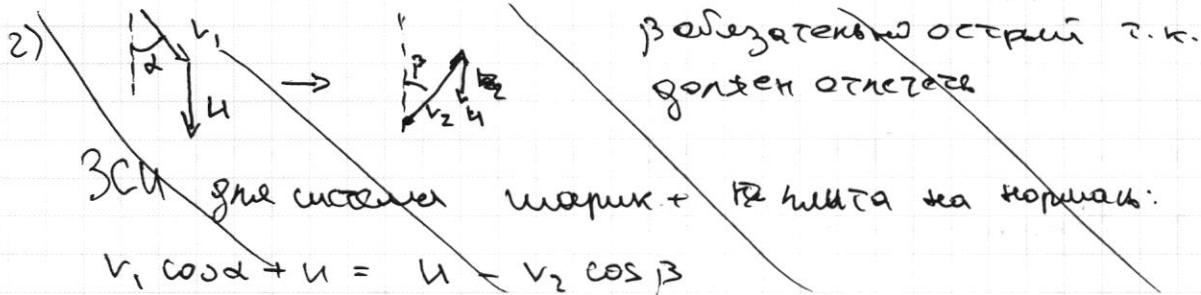 2)
α
V₁
u
β
V₂
u
β обязательно острый т.к.
должен отлететь
ЗСИ для системы шарик + плита на нормаль:
V₁ cosα + u = u - V₂ cosβ